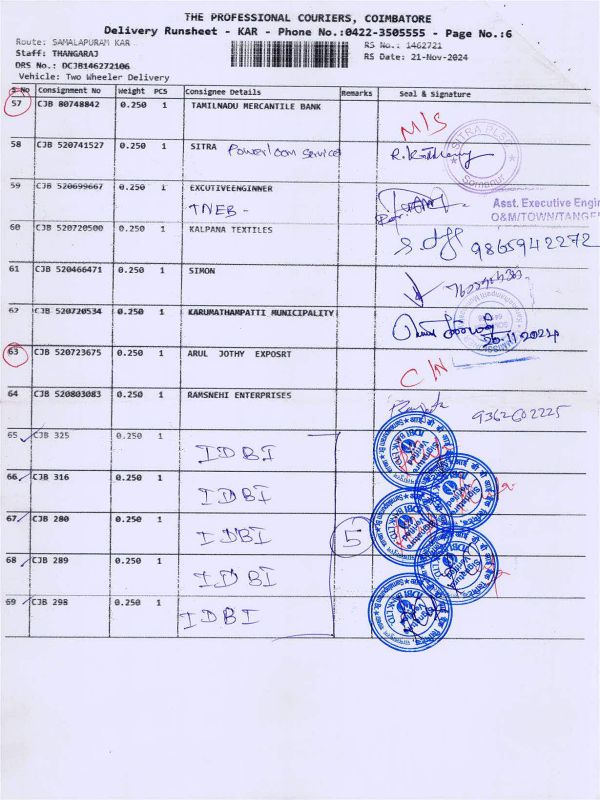 THE PROFESSIONAL COURIERS, COIMBATORE
Delivery Runsheet - KAR - Phone No.:0422-3505555 - Page No.:6
Route: SAMALAPURAM KAR
RS No.: 1462721
Staff: THANGARAJ
RS Date: 21-Nov-2024
DRS No.: DCJB146272106
Vehicle: Two Wheeler Delivery
S No Consignment No Weight PCS Consignee Details Remarks Seal & Signature
57 CJB 80748842 0.250 1 TAMILNADU MERCANTILE BANK
M/S
58 CJB 520741527 0.250 1 SITRA Powerloom Service
59 CJB 520699667 0.250 1 EXCUTIVEENGINNER
TNEB -
Asst. Executive Engi
O&M/TOWN/TANGE
60 CJB 520720500 0.250 1 KALPANA TEXTILES
9865942272
61 CJB 520466471 0.250 1 SIMON
62 CJB 520720534 0.250 1 KARUMATHAMPATTI MUNICIPALITY
20.11.2024
63 CJB 520723675 0.250 1 ARUL JOTHY EXPOSRT
C/N
64 CJB 520803083 0.250 1 RAMSNEHI ENTERPRISES
9362602225
65 CJB 325 0.250 1 IDBI
66 CJB 316 0.250 1 IDBI
67 CJB 280 0.250 1 IDBI
5
68 CJB 289 0.250 1 IDBI
69 CJB 298 0.250 1 IDBI